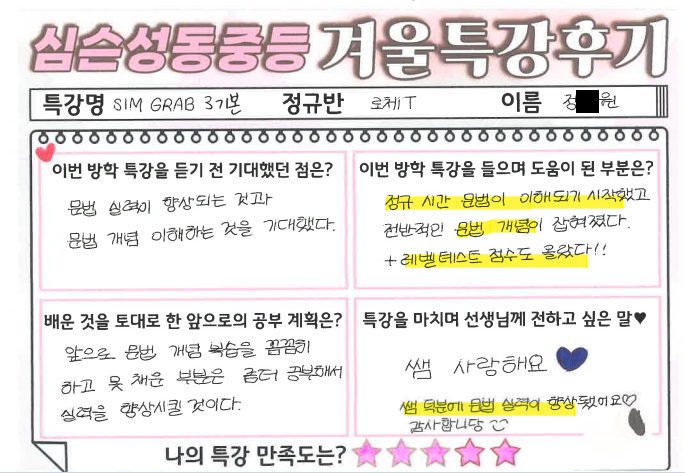 심슨성동중등 겨울특강후기
특강명 SIM GRAB 3기본 정규반 로체T 이름 정 원
이번 방학 특강을 듣기 전 기대했던 점은?
문법 실력이 향상되는 것과
문법 개념 이해하는 것을 기대했다.
이번 방학 특강을 들으며 도움이 된 부분은?
정규 시간 문법이 이해되기 시작했고
전반적인 문법 개념이 잡혀졌다.
+ 레벨테스트 점수도 올랐다!!
배운 것을 토대로 한 앞으로의 공부 계획은?
앞으로 문법 개념 복습을 꼼꼼히
하고 못 채운 부분은 좀더 공부해서
실력을 향상시킬 것이다.
특강을 마치며 선생님께 전하고 싶은 말♥
쌤 사랑해요
쌤 덕분에 문법 실력이 향상됐어요♡
감사합니당
나의 특강 만족도는?